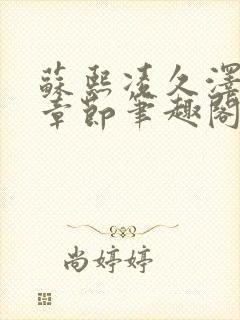 蘇熙凌久澤
章節筆趣閣
尚婷婷